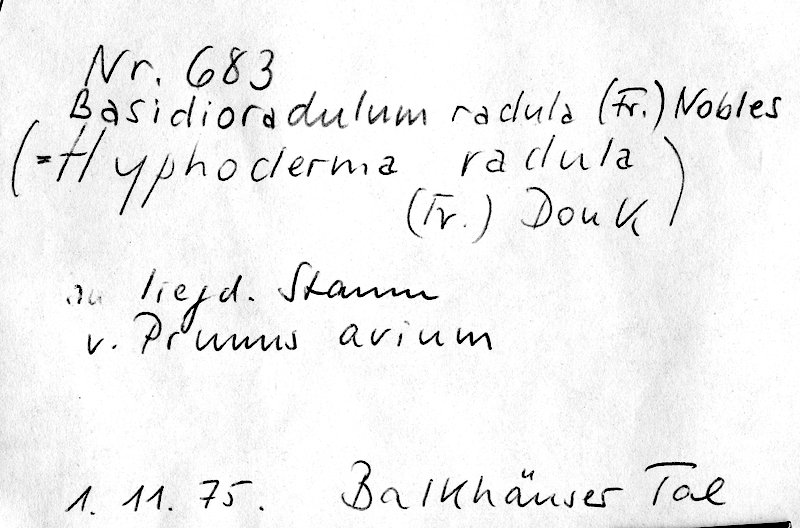 Nr. 683
Basidioradulum radula (Fr.) Nobles
(= Hyphoderma radula
(Fr.) Donk)
an liegd. Stamm
v. Prunus avium
1. 11. 75. Balkhäuser Tal